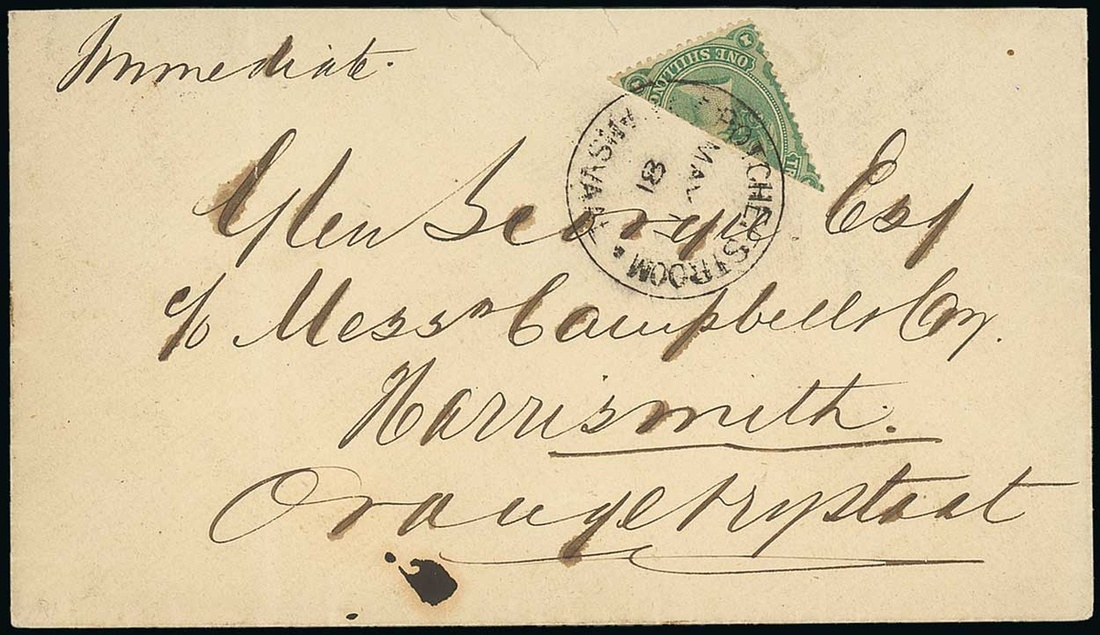 Immediate.
ONE SHILLING
POTCHEFSTROOM
MAY
18
Glen George Esq
c/o Messrs Campbell & Coy.
Harrismith.
Orange Vrystaat